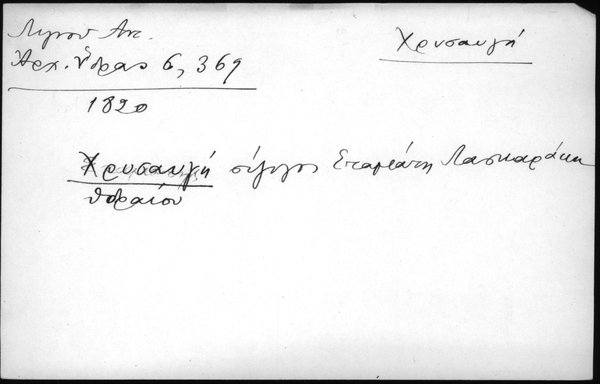 Λιγνού Αντ.
Χρυσαυγή
Αρχ. Ύδρας 6, 369
1820
Χρυσαυγή σύζυγος Σταμάτη Λασκαράκη
Υδραίου